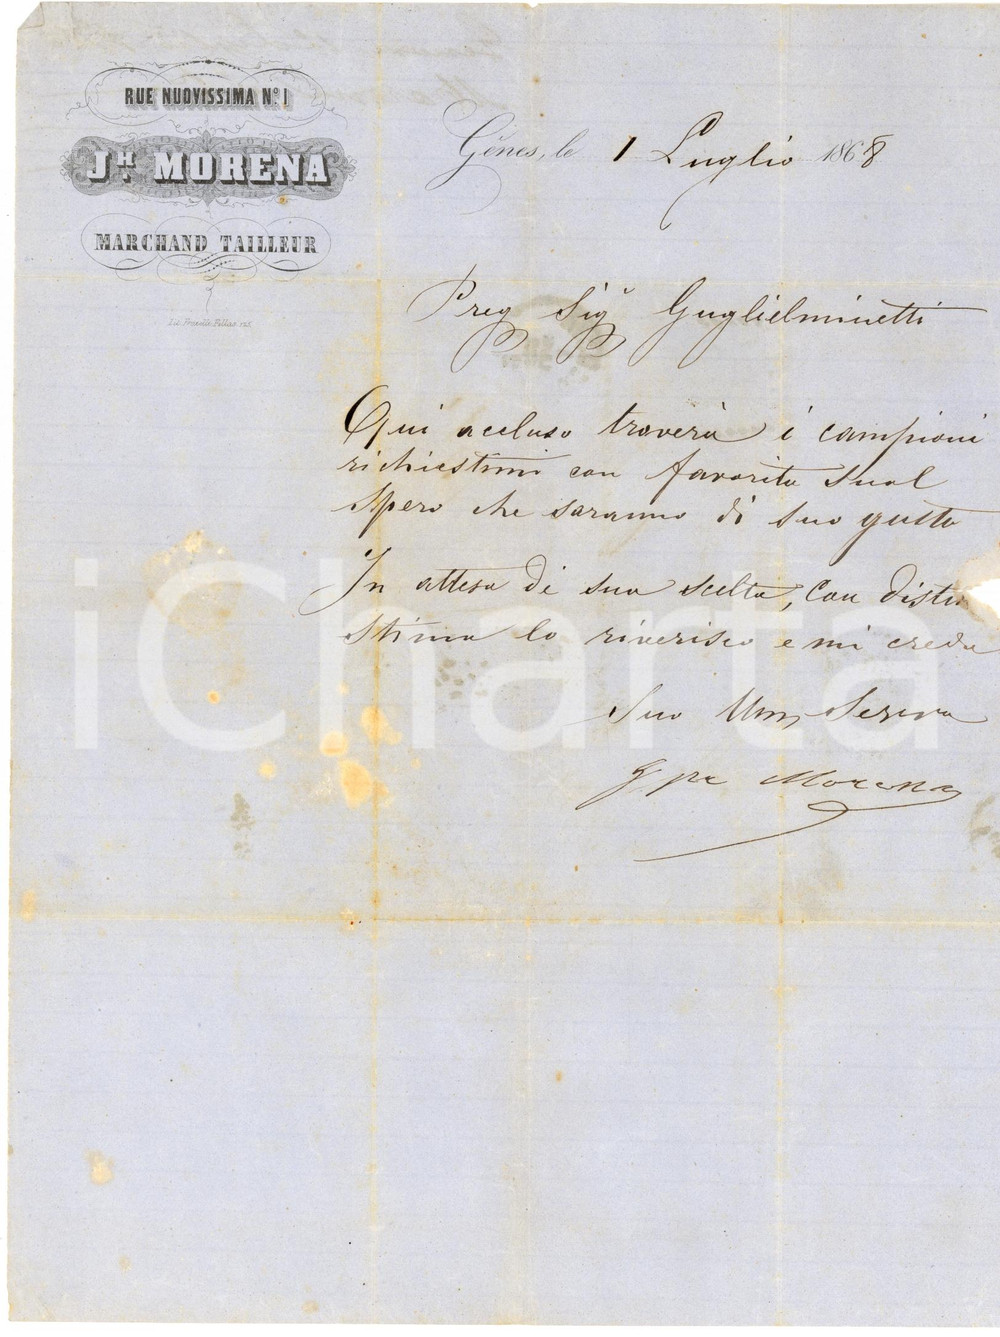 RUE NUOVISSIMA Nº 1
JH. MORENA
MARCHAND TAILLEUR
Lit. Fratelli Pellas
Gênes, le 1 Luglio 1868
Preg Sigr Guglielminetti
Qui accluso troverà i campioni
richiestimi con favorita Sua
Spero che saranno di suo gusto
In attesa di sua scelta, con distin
Stima lo riverisco e mi creda
Suo Um Serva
Gpe Morena
iCharta